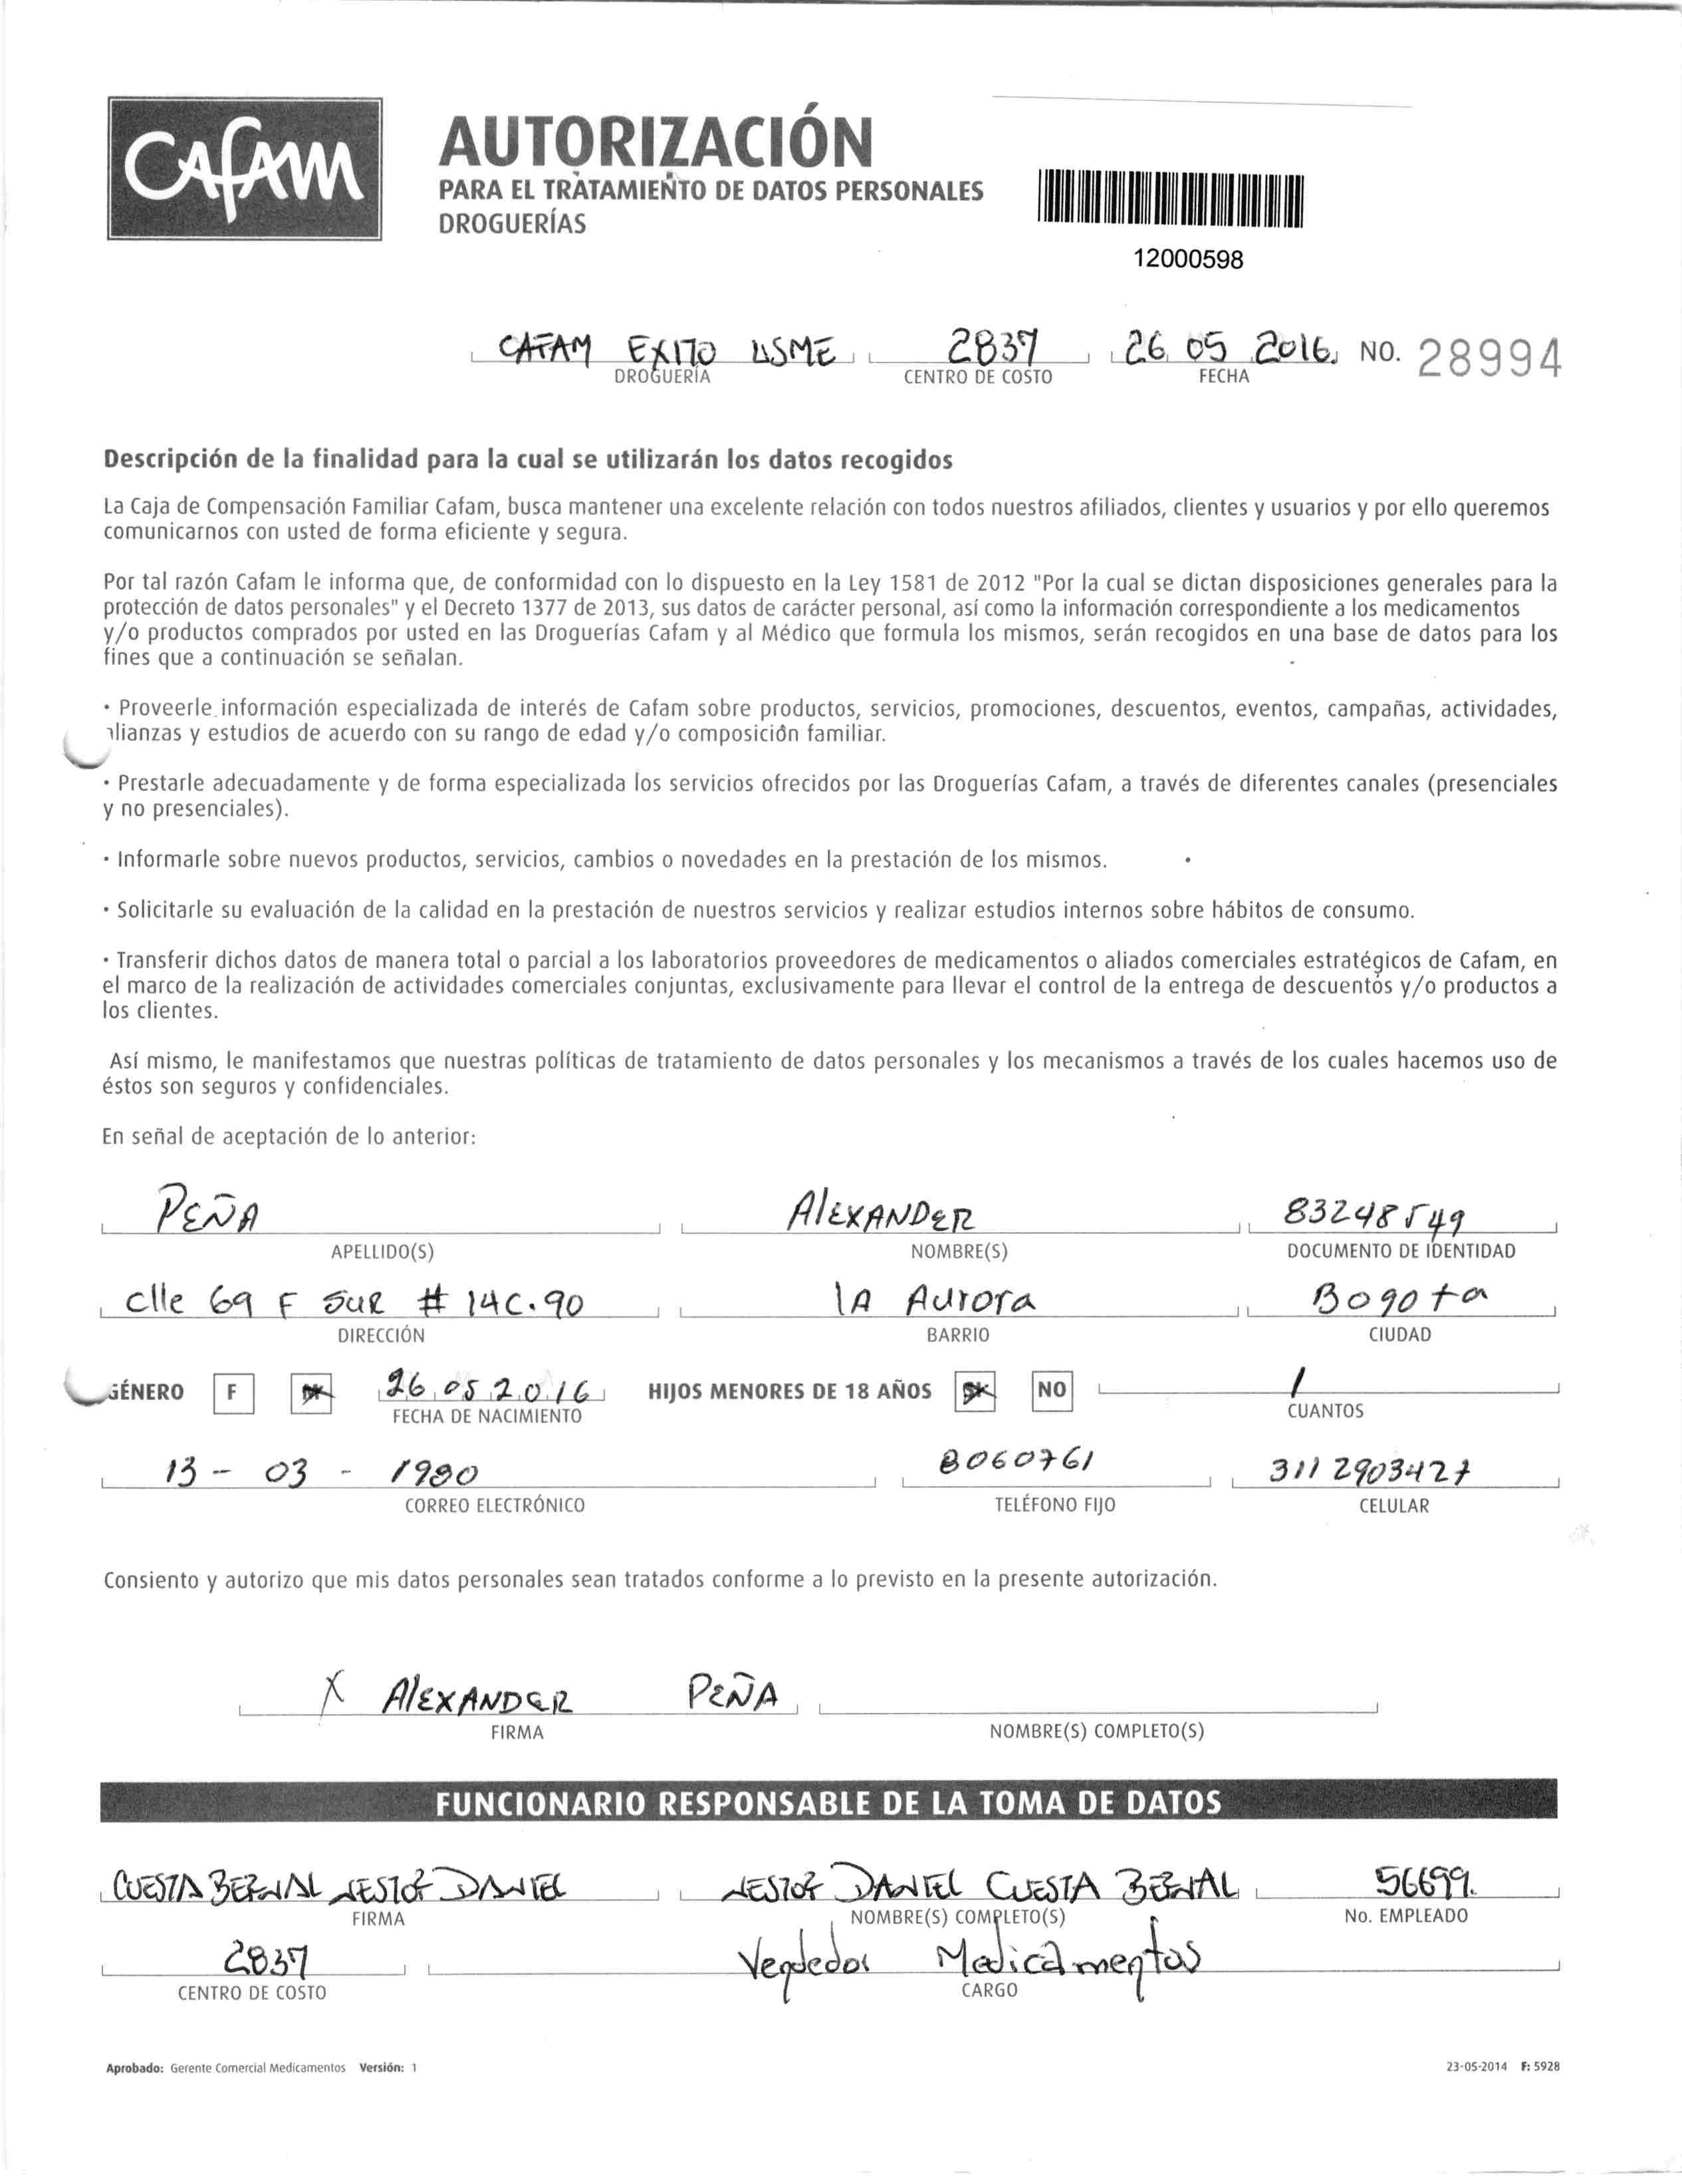 CAFAM
AUTORIZACIÓN
PARA EL TRATAMIENTO DE DATOS PERSONALES
DROGUERÍAS
12000598
CAFAM EXITO USME 2837 26 05 2016. NO. 28994
DROGUERÍA CENTRO DE COSTO FECHA
Descripción de la finalidad para la cual se utilizarán los datos recogidos
La Caja de Compensación Familiar Cafam, busca mantener una excelente relación con todos nuestros afiliados, clientes y usuarios y por ello queremos
comunicarnos con usted de forma eficiente y segura.
Por tal razón Cafam le informa que, de conformidad con lo dispuesto en la Ley 1581 de 2012 "Por la cual se dictan disposiciones generales para la
protección de datos personales" y el Decreto 1377 de 2013, sus datos de carácter personal, así como la información correspondiente a los medicamentos
y/o productos comprados por usted en las Droguerías Cafam y al Médico que formula los mismos, serán recogidos en una base de datos para los
fines que a continuación se señalan.
· Proveerle información especializada de interés de Cafam sobre productos, servicios, promociones, descuentos, eventos, campañas, actividades,
alianzas y estudios de acuerdo con su rango de edad y/o composición familiar.
· Prestarle adecuadamente y de forma especializada los servicios ofrecidos por las Droguerías Cafam, a través de diferentes canales (presenciales
y no presenciales).
· Informarle sobre nuevos productos, servicios, cambios o novedades en la prestación de los mismos.
· Solicitarle su evaluación de la calidad en la prestación de nuestros servicios y realizar estudios internos sobre hábitos de consumo.
· Transferir dichos datos de manera total o parcial a los laboratorios proveedores de medicamentos o aliados comerciales estratégicos de Cafam, en
el marco de la realización de actividades comerciales conjuntas, exclusivamente para llevar el control de la entrega de descuentos y/o productos a
los clientes.
Así mismo, le manifestamos que nuestras políticas de tratamiento de datos personales y los mecanismos a través de los cuales hacemos uso de
éstos son seguros y confidenciales.
En señal de aceptación de lo anterior:
PEÑA AlEXANDER 83248549
APELLIDO(S) NOMBRE(S) DOCUMENTO DE IDENTIDAD
clle 69 F SUR # 14C.90 lA AUrora Bogota
DIRECCIÓN BARRIO CIUDAD
GÉNERO F M 26 05 2016 HIJOS MENORES DE 18 AÑOS SI NO 1
FECHA DE NACIMIENTO CUANTOS
13 - 03 - 1980 8060761 311 2903427
CORREO ELECTRÓNICO TELÉFONO FIJO CELULAR
Consiento y autorizo que mis datos personales sean tratados conforme a lo previsto en la presente autorización.
X AlEXANDER PEÑA
FIRMA NOMBRE(S) COMPLETO(S)
FUNCIONARIO RESPONSABLE DE LA TOMA DE DATOS
CUESTA BERNAL NESTOR DANIEL NESTOR DANIEL CUESTA BERNAL 56699.
FIRMA NOMBRE(S) COMPLETO(S) No. EMPLEADO
2837 Vendedor Medicamentos
CENTRO DE COSTO CARGO
Aprobado: Gerente Comercial Medicamentos Versión: 1 23-05-2014 F: 5928